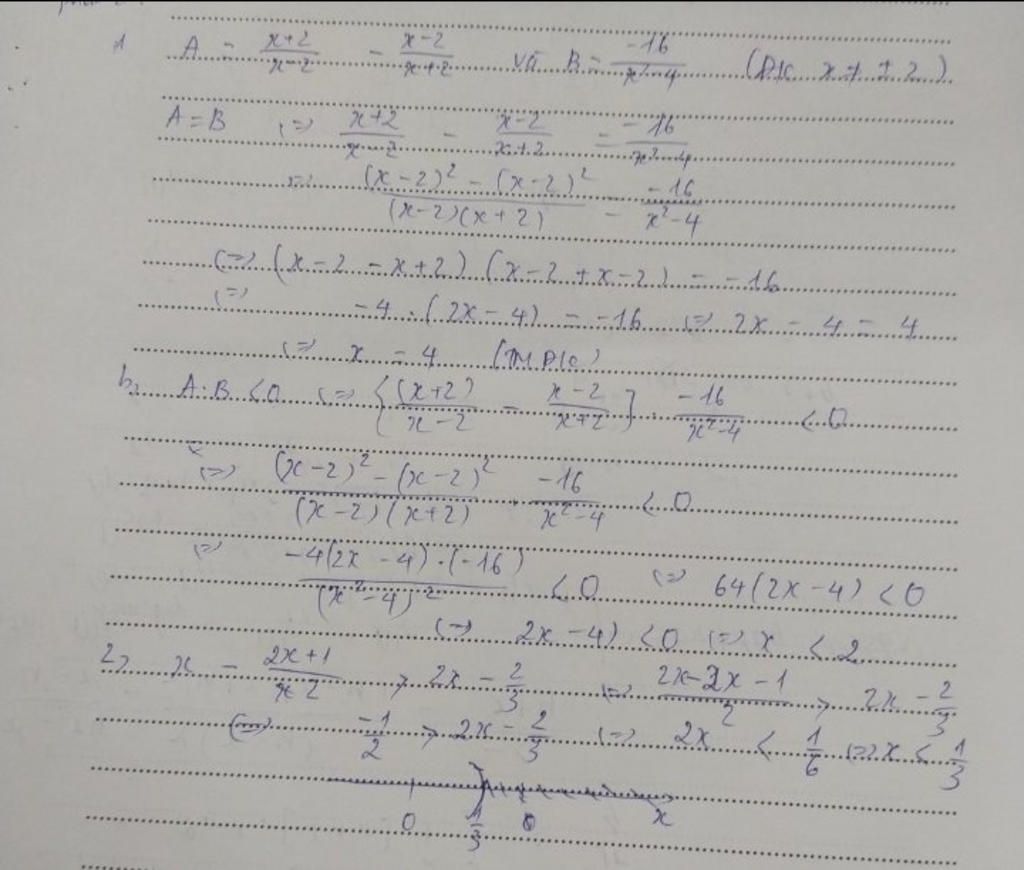 1 A = \frac{x+2}{x-2} - \frac{x-2}{x+2} và B = \frac{-16}{x^2-4} (ĐK x ≠ ± 2)
A = B (=) \frac{x+2}{x-2} - \frac{x-2}{x+2} = \frac{-16}{x^2-4}
(=) \frac{(x-2)^2 - (x-2)^2}{(x-2)(x+2)} = \frac{-16}{x^2-4}
(=) (x-2-x+2) (x-2+x-2) = -16
(=) -4 . (2x-4) = -16 (=) 2x - 4 = 4
(=) x = 4 (TM ĐK)
b, A.B < 0 (=) {\frac{(x+2)}{x-2} - \frac{x-2}{x+2}} . \frac{-16}{x^2-4} < 0
(=) \frac{(x-2)^2 - (x-2)^2}{(x-2)(x+2)} . \frac{-16}{x^2-4} < 0
(=) \frac{-4(2x-4).(-16)}{(x^2-4)^2} < 0 (=) 64(2x-4) < 0
(=) 2x-4) < 0 (=) x < 2
2, x - \frac{2x+1}{2} > 2x - \frac{2}{3} (=) \frac{2x-2x-1}{2} > 2x - \frac{2}{3}
(=) \frac{-1}{2} > 2x - \frac{2}{3} (=) 2x < \frac{1}{6} (=) x < \frac{1}{3}
0 \frac{1}{3} x